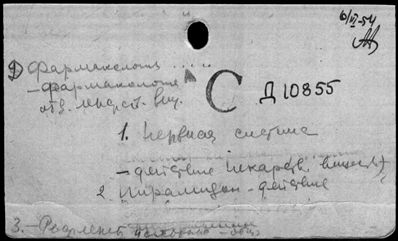 6/VI-54
9) Фармакология ....
- фармакология
отд. лекарст. вещ.
С Д 10855
1. Нервная система
- действие лекарств. веществ)
2. Пирамидон - действие
3. - Рефлексы